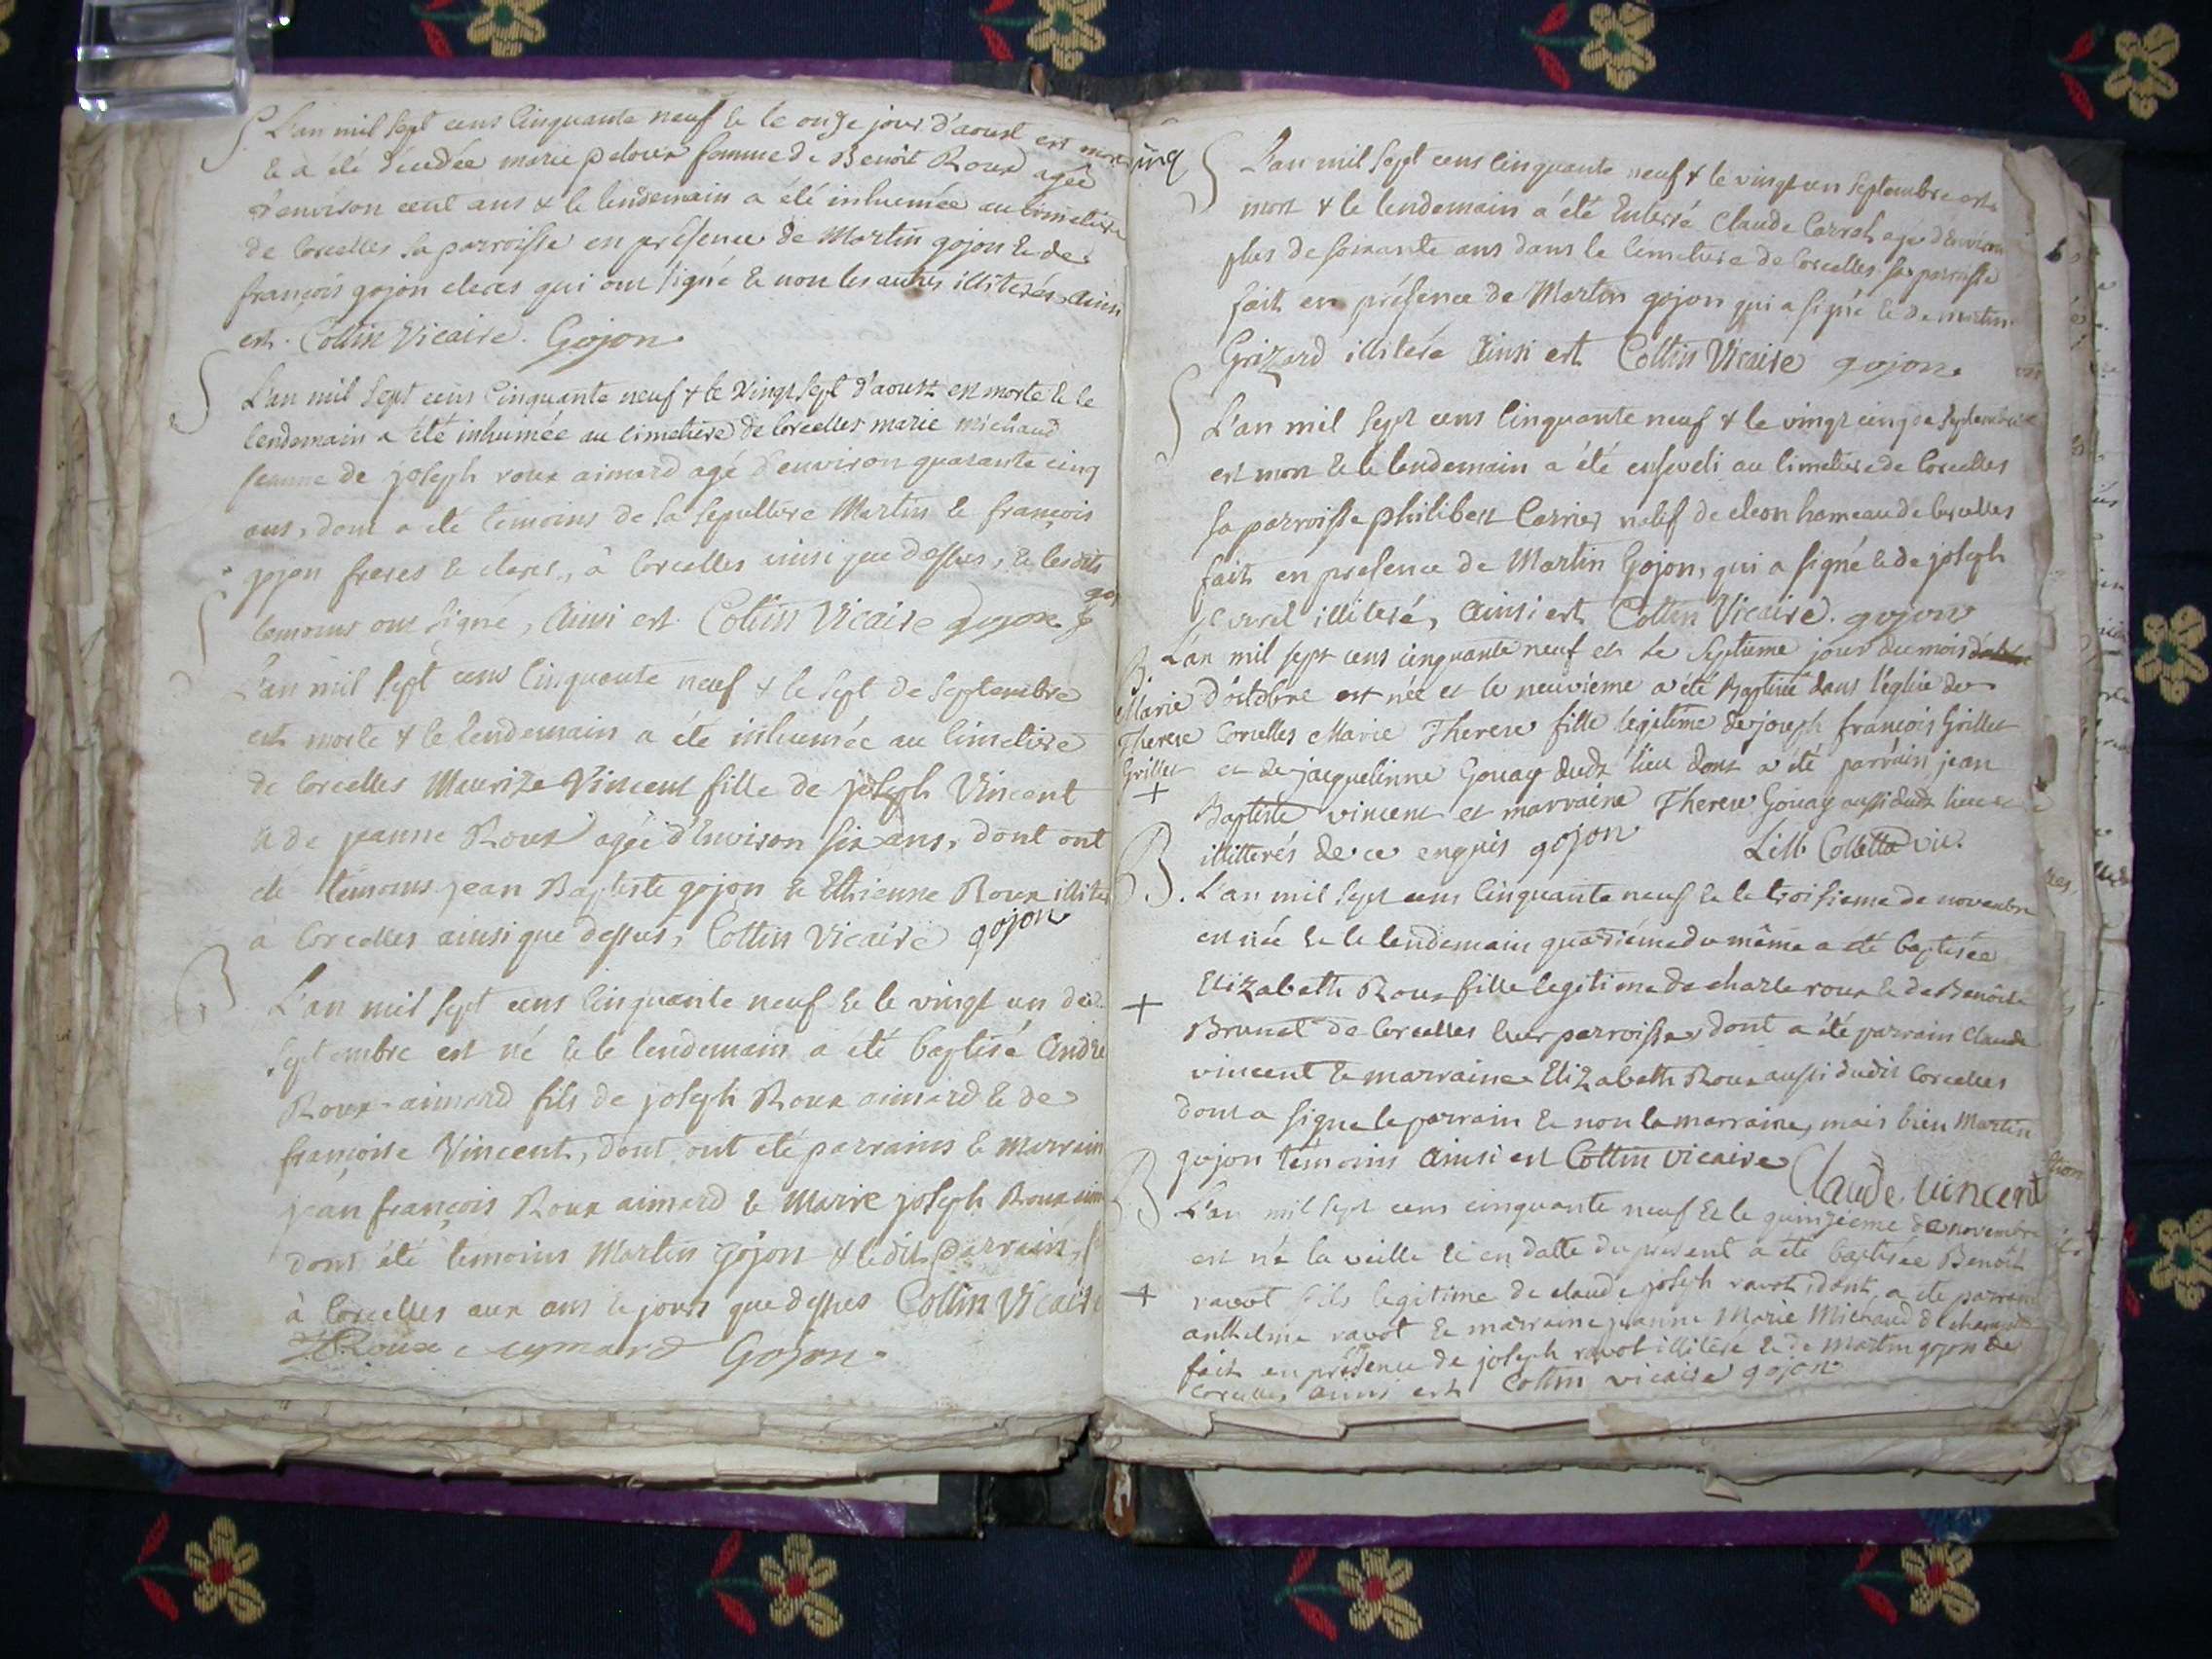 S. L'an mil sept cens cinquante neuf & le onze jour d'aoust est morte
& a été marie femme de Benoît Roux agée
d'environ cent ans & le lendemain a été inhumée au cimetiere
de Corcelles sa parroisse en présence de Martin gojon & de
françois gojon clercs qui ont signé & non les autres illiterés, ainsi
est. Cottin Vicaire. Gojon
S L'an mil sept cens cinquante neuf & le vingt sept d'aoust est morte & le
lendemain a été inhumée au cimetiere de Corcelles marie michaud
femme de joseph roux aimard agé d'environ quarante cinq
ans, dont a été temoins de sa sepulture Martin & françois
gojon freres & clercs, à Corcelles ainsi que dessus, & lesdits
temoins ont signé, Ainsi est Cottin Vicaire gojon
S L'an mil sept cens cinquante neuf & le sept de septembre
est morte & le lendemain a été inhumée au cimetiere
de Corcelles Maurize Vincent fille de joseph Vincent
& de jeanne Roux agée d'environ six ans, dont ont
été témoins jean Baptiste gojon & Ethienne Roux illite
à Corcelles ainsi que dessus, Cottin Vicaire gojon
B L'an mil sept cens cinquante neuf & le vingt un de
septembre est né & le lendemain a été baptisé André
Roux-aimard fils de joseph Roux aimard & de
françoise Vincent, dont ont été parrains & marrain
jean françois Roux aimard & Marie joseph Roux aim
dont été témoins Martin gojon & ledit parrain,
à Corcelles aux ans & jours que dessus Cottin Vicaire
Roux aymard Gojon
S L'an mil sept cens cinquante neuf & le vingt un septembre est
mort & le lendemain a été enterré Claude Carrat agé d'environ
plus de soixante ans dans le cimetiere de Corcelles sa parroisse
fait en présence de Martin gojon qui a signé & de martin
Grizard illiteré Ainsi est Cottin Vicaire gojon
S L'an mil sept cens cinquante neuf & le vingt cinq de septembre
est mort & le lendemain a été enseveli au cimetiere de Corcelles
sa parroisse philibert Carrier natif de cleon hameau de Corcelles
fait en presence de Martin Gojon, qui a signé & de joseph
illiteré, Ainsi est Cottin Vicaire. gojon
B. L'an mil sept cens cinquante neuf et le septieme jour du mois
Marie d'octobre est née et le neuvieme a été Baptisée dans l'église de
Therese Corcelles Marie Therese fille legitime de joseph françois Grillet
Grillet et de jacquelinne Gouay dudt lieu dont a été parrain jean
+ Baptiste vincent et marraine Therese Gouay aussi dudt lieu et
illitterés de ce enquis gojon Colletta vic.
B. L'an mil sept cens cinquante neuf & le troisieme de novembre
est née & le lendemain quatriéme du même a été baptisée
+ Elizabeth Roux fille legitime de charle roux & de Benoite
Brunet de Corcelles leur parroisse, dont a été parrain Claude
vincent & marraine Elizabeth Roux aussi dudit Corcelles
dont a signé le parrain & non la marraine, mais bien Martin
gojon témoins Ainsi est Cottin vicaire Claude vincent
B L'an mil sept cens cinquante neuf & le quinzieme de novembre
est né la veille & en datte du présent a été baptisée Benoît
+ ravot fils legitime de claude joseph ravot, dont a été parrain
anthelme ravot & marraine jeanne Marie Michaud
fait en présence de joseph ravot illiteré & de martin gojon de
Corcelles ainsi est Cottin vicaire gojon